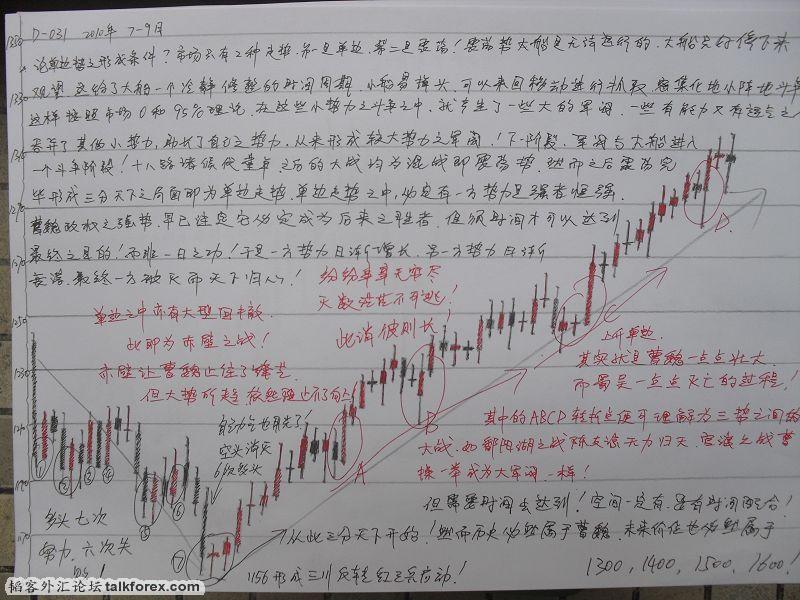 D-031 2010年 7-9月
论单边势之形成条件?市场只有2种走势,第一是单边,第二是震荡!震荡势大船是无法逆行的.大船只好停下来
观望.这给了大船一个冷静修整的时间周期.小船易掉头,可以来回移动进行抓取.密集化地小阵地斗争
这样按照市场0和95%理论.在这些小势力之斗争之中,就产生了一些大的军阀.一些有能力又有运气之人
吞弃了其他小势力,助长了自己之势力,从来形成较大势力之军阀!下一阶段,军阀与大船进入
一个斗争阶段!十八路诸侯伐董卓之后的大战均为混战即震荡势.然而之后震荡完
毕形成三分天下之局面即为单边走势.单边走势之中,必定有一方势力是强者恒强.
曹魏政权之强势,早已注定它必定成为后来之胜者.但须时间才可以达到
最终之目的!而非一日之功!于是一方势力日渐增长,另一方势力日渐
最终一方被灭而天下归心!
单边之中亦有大型回撤
此即为赤壁之战!
赤壁让曹魏止住了
但大势所趋 依然阻止不了的
纷纷
此消彼则长!
空头消灭
多头七次
努力,六次失
上升单边.
其实就是曹魏一点点壮大
而蜀吴一点点灭亡的过程!
其中的ABCD转折点便可理解为三势之间的
大战.如鄱阳湖之战陈友谅无力归天.官渡之战曹
操一举成为大军阀一样!
但需要时间去达到!空间一定有,还有时间配合!
从此三分天下开始!然而历史必然属于曹魏.未来价位也必然属于
1300, 1400, 1500, 1600!
1156形成三川反转红三兵启动!
A
B
D
① ② ③ ④
⑤ ⑥
⑦
1350
1330
1310
1270
1250
1230
1210
1190
1170
韬客外汇论坛 talkforex.com